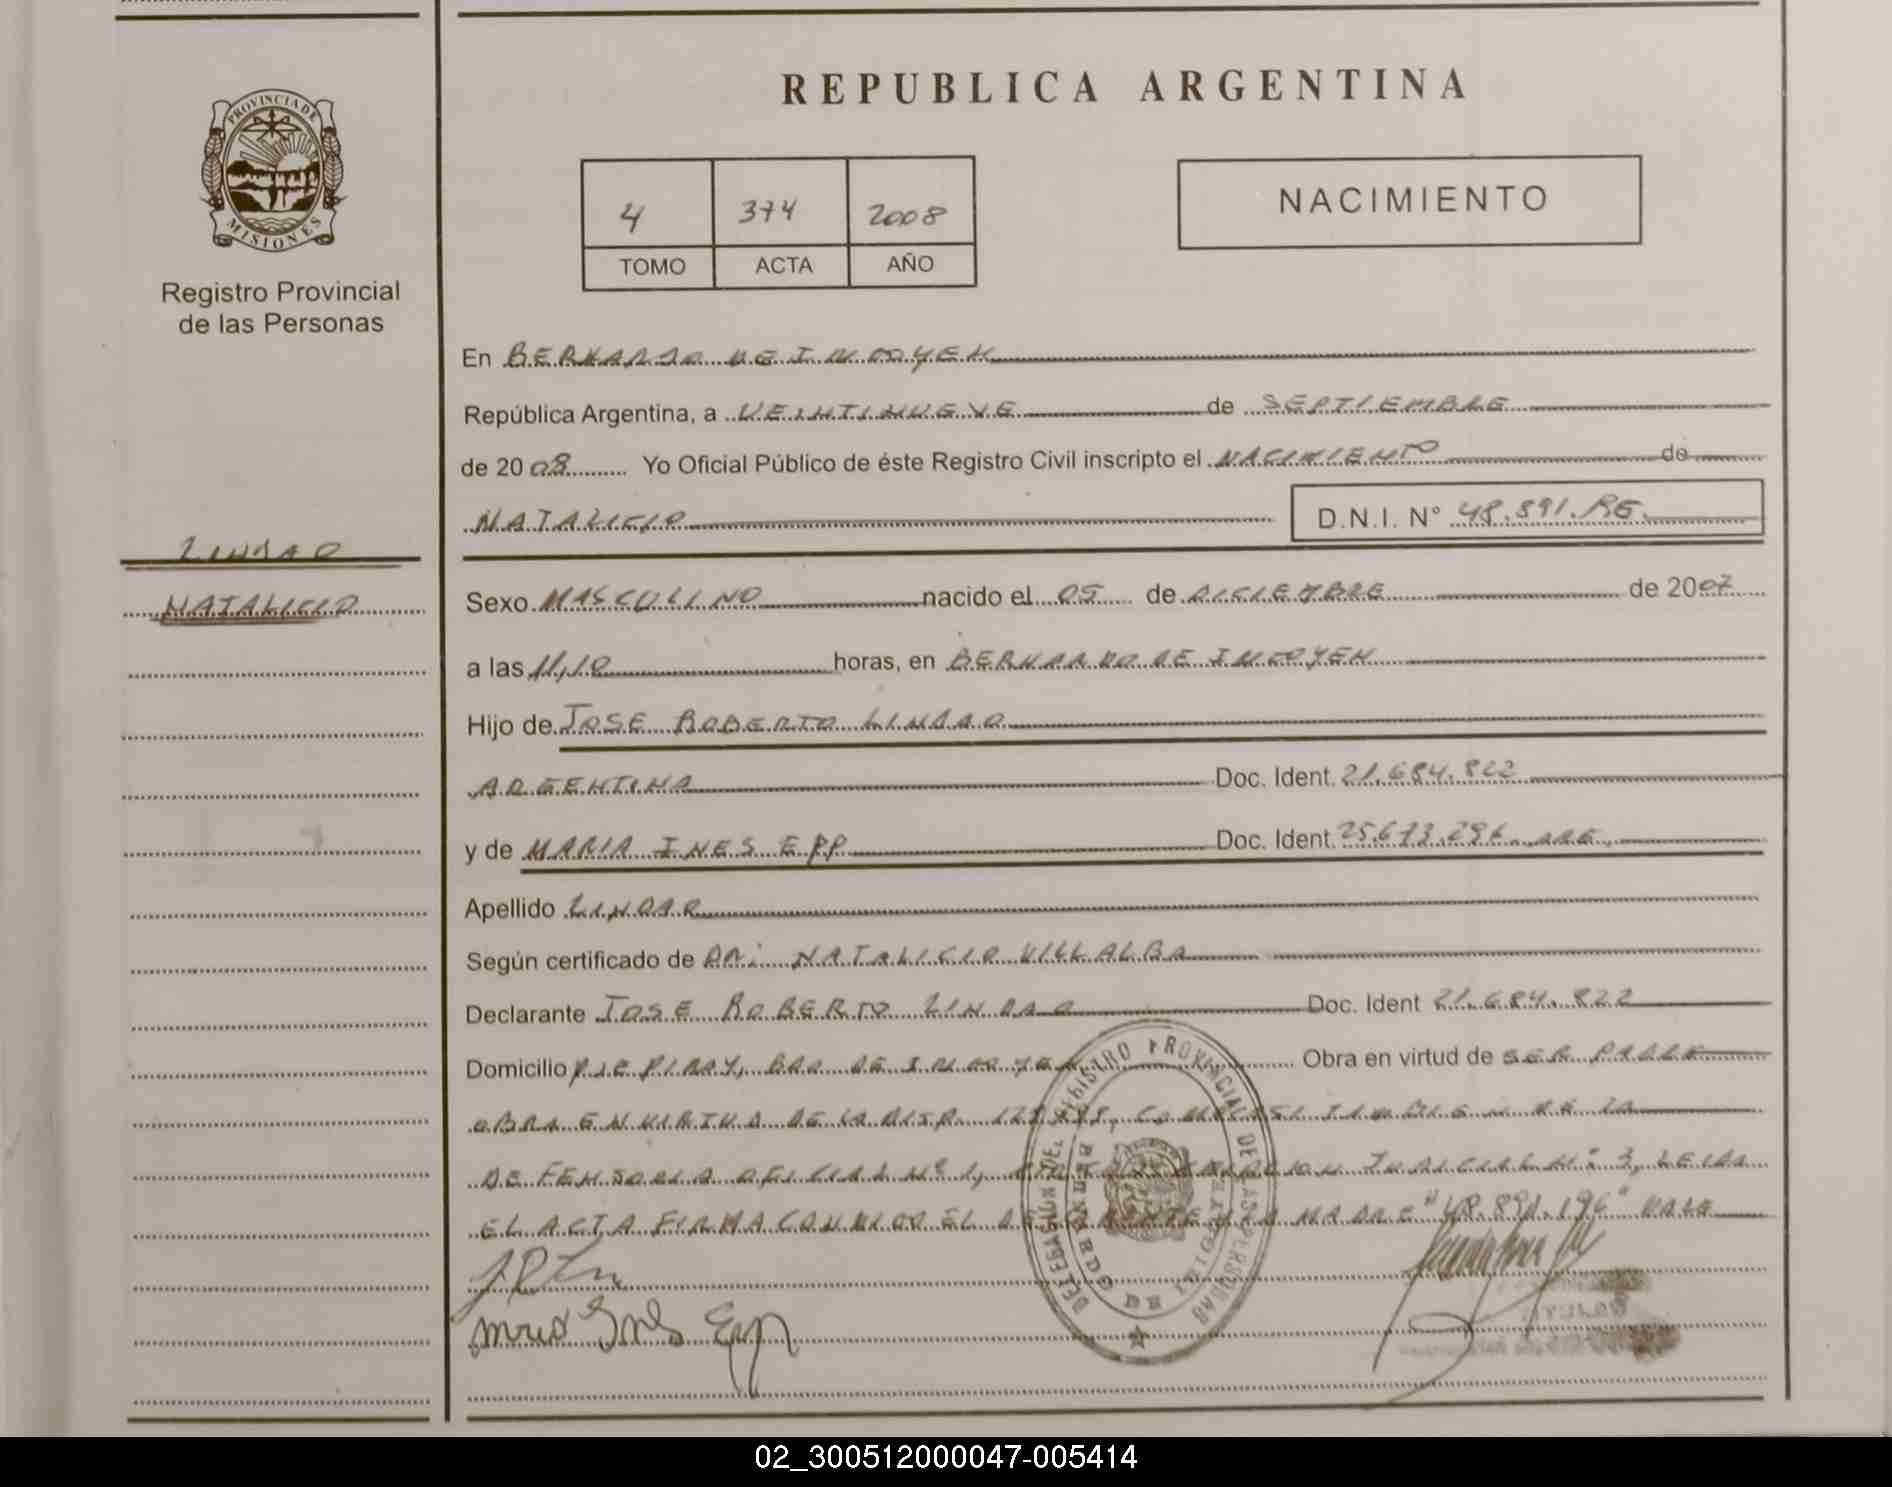 REPUBLICA ARGENTINA
PROVINCIA DE
MISIONES
Registro Provincial
de las Personas
4 374 2008
TOMO ACTA AÑO
NACIMIENTO
En BERNARDO DE IRIGOYEN
República Argentina, a VEINTINUEVE de SEPTIEMBRE
de 2008 Yo Oficial Público de éste Registro Civil inscripto el NACIMIENTO de
NATALICIO D.N.I. N° 48.891.
LINDAO
NATALICIO
Sexo MASCULINO nacido el 05 de DICIEMBRE de 2007
a las 11,10 horas, en BERNARDO DE IRIGOYEN
Hijo de JOSE ROBERTO LINDAO
ARGENTINA Doc. Ident. 21.684.822
y de MARIA INES EPP Doc. Ident. 25.673.296 ARG.
Apellido LINDAO
Según certificado de DR: NATALICIO VILLALBA
Declarante JOSE ROBERTO LINDAO Doc. Ident 21.684.822
Domicilio PJE PIRAY, BDO DE IRIGOYEN Obra en virtud de SER PADRE
OBRA EN VIRTUD DE LA DISP. COMO ASI TAMBIEN DE LA
DEFENSORIA OFICIAL N° 1, JUDICIAL N° 3, LEIDA
EL ACTA FIRMA CONMIGO EL DECLARANTE Y LA MADRE "48.891.196" VALE
Maria Ines Epp
DELEGACION DEL REGISTRO PROVINCIAL DE LAS PERSONAS
BERNARDO DE IRIGOYEN
02_300512000047-005414